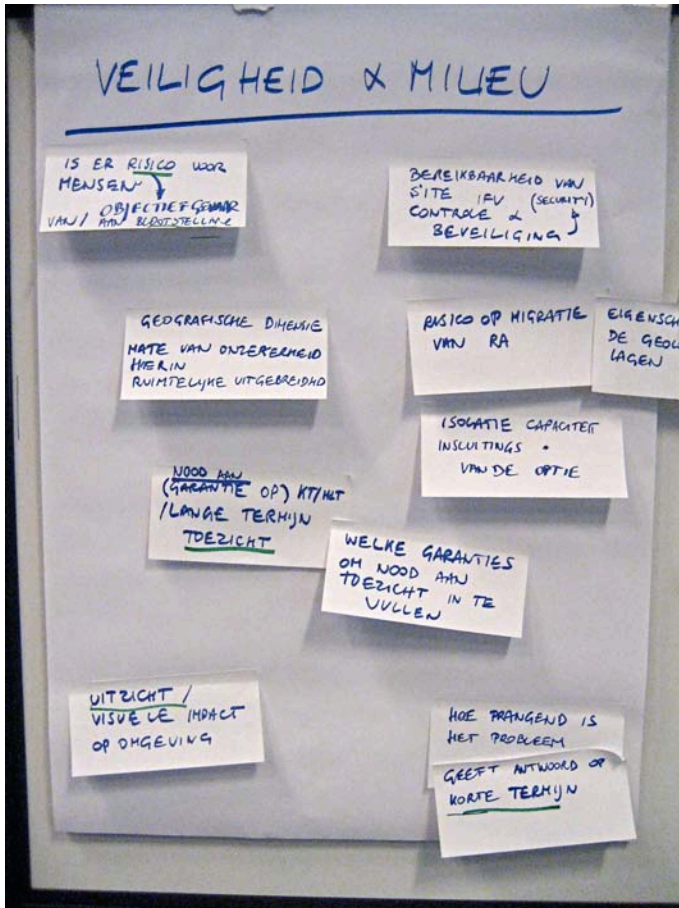 VEILIGHEID & MILIEU
IS ER RISICO VOOR
MENSEN
OBJECTIEF GEVAAR
VAN/AAN BLOOTSTELLING
BEREIKBAARHEID VAN
SITE IFV (SECURITY)
CONTROLE &
BEVEILIGING
GEOGRAFISCHE DIMENSIE
MATE VAN ONZEKERHEID
HIERIN
RUIMTELIJKE UITGEBREIDHD
RISICO OP MIGRATIE
VAN RA
EIGENSCH
DE GEOL
LAGEN
ISOLATIE CAPACITEIT
INSLUITINGS
VAN DE OPTIE
NOOD AAN
(GARANTIE OP) KT/MLT
/LANGE TERMIJN
TOEZICHT
WELKE GARANTIES
OM NOOD AAN
TOEZICHT IN TE
VULLEN
UITZICHT /
VISUELE IMPACT
OP OMGEVING
HOE PRANGEND IS
HET PROBLEEM
GEEFT ANTWOORD OP
KORTE TERMIJN